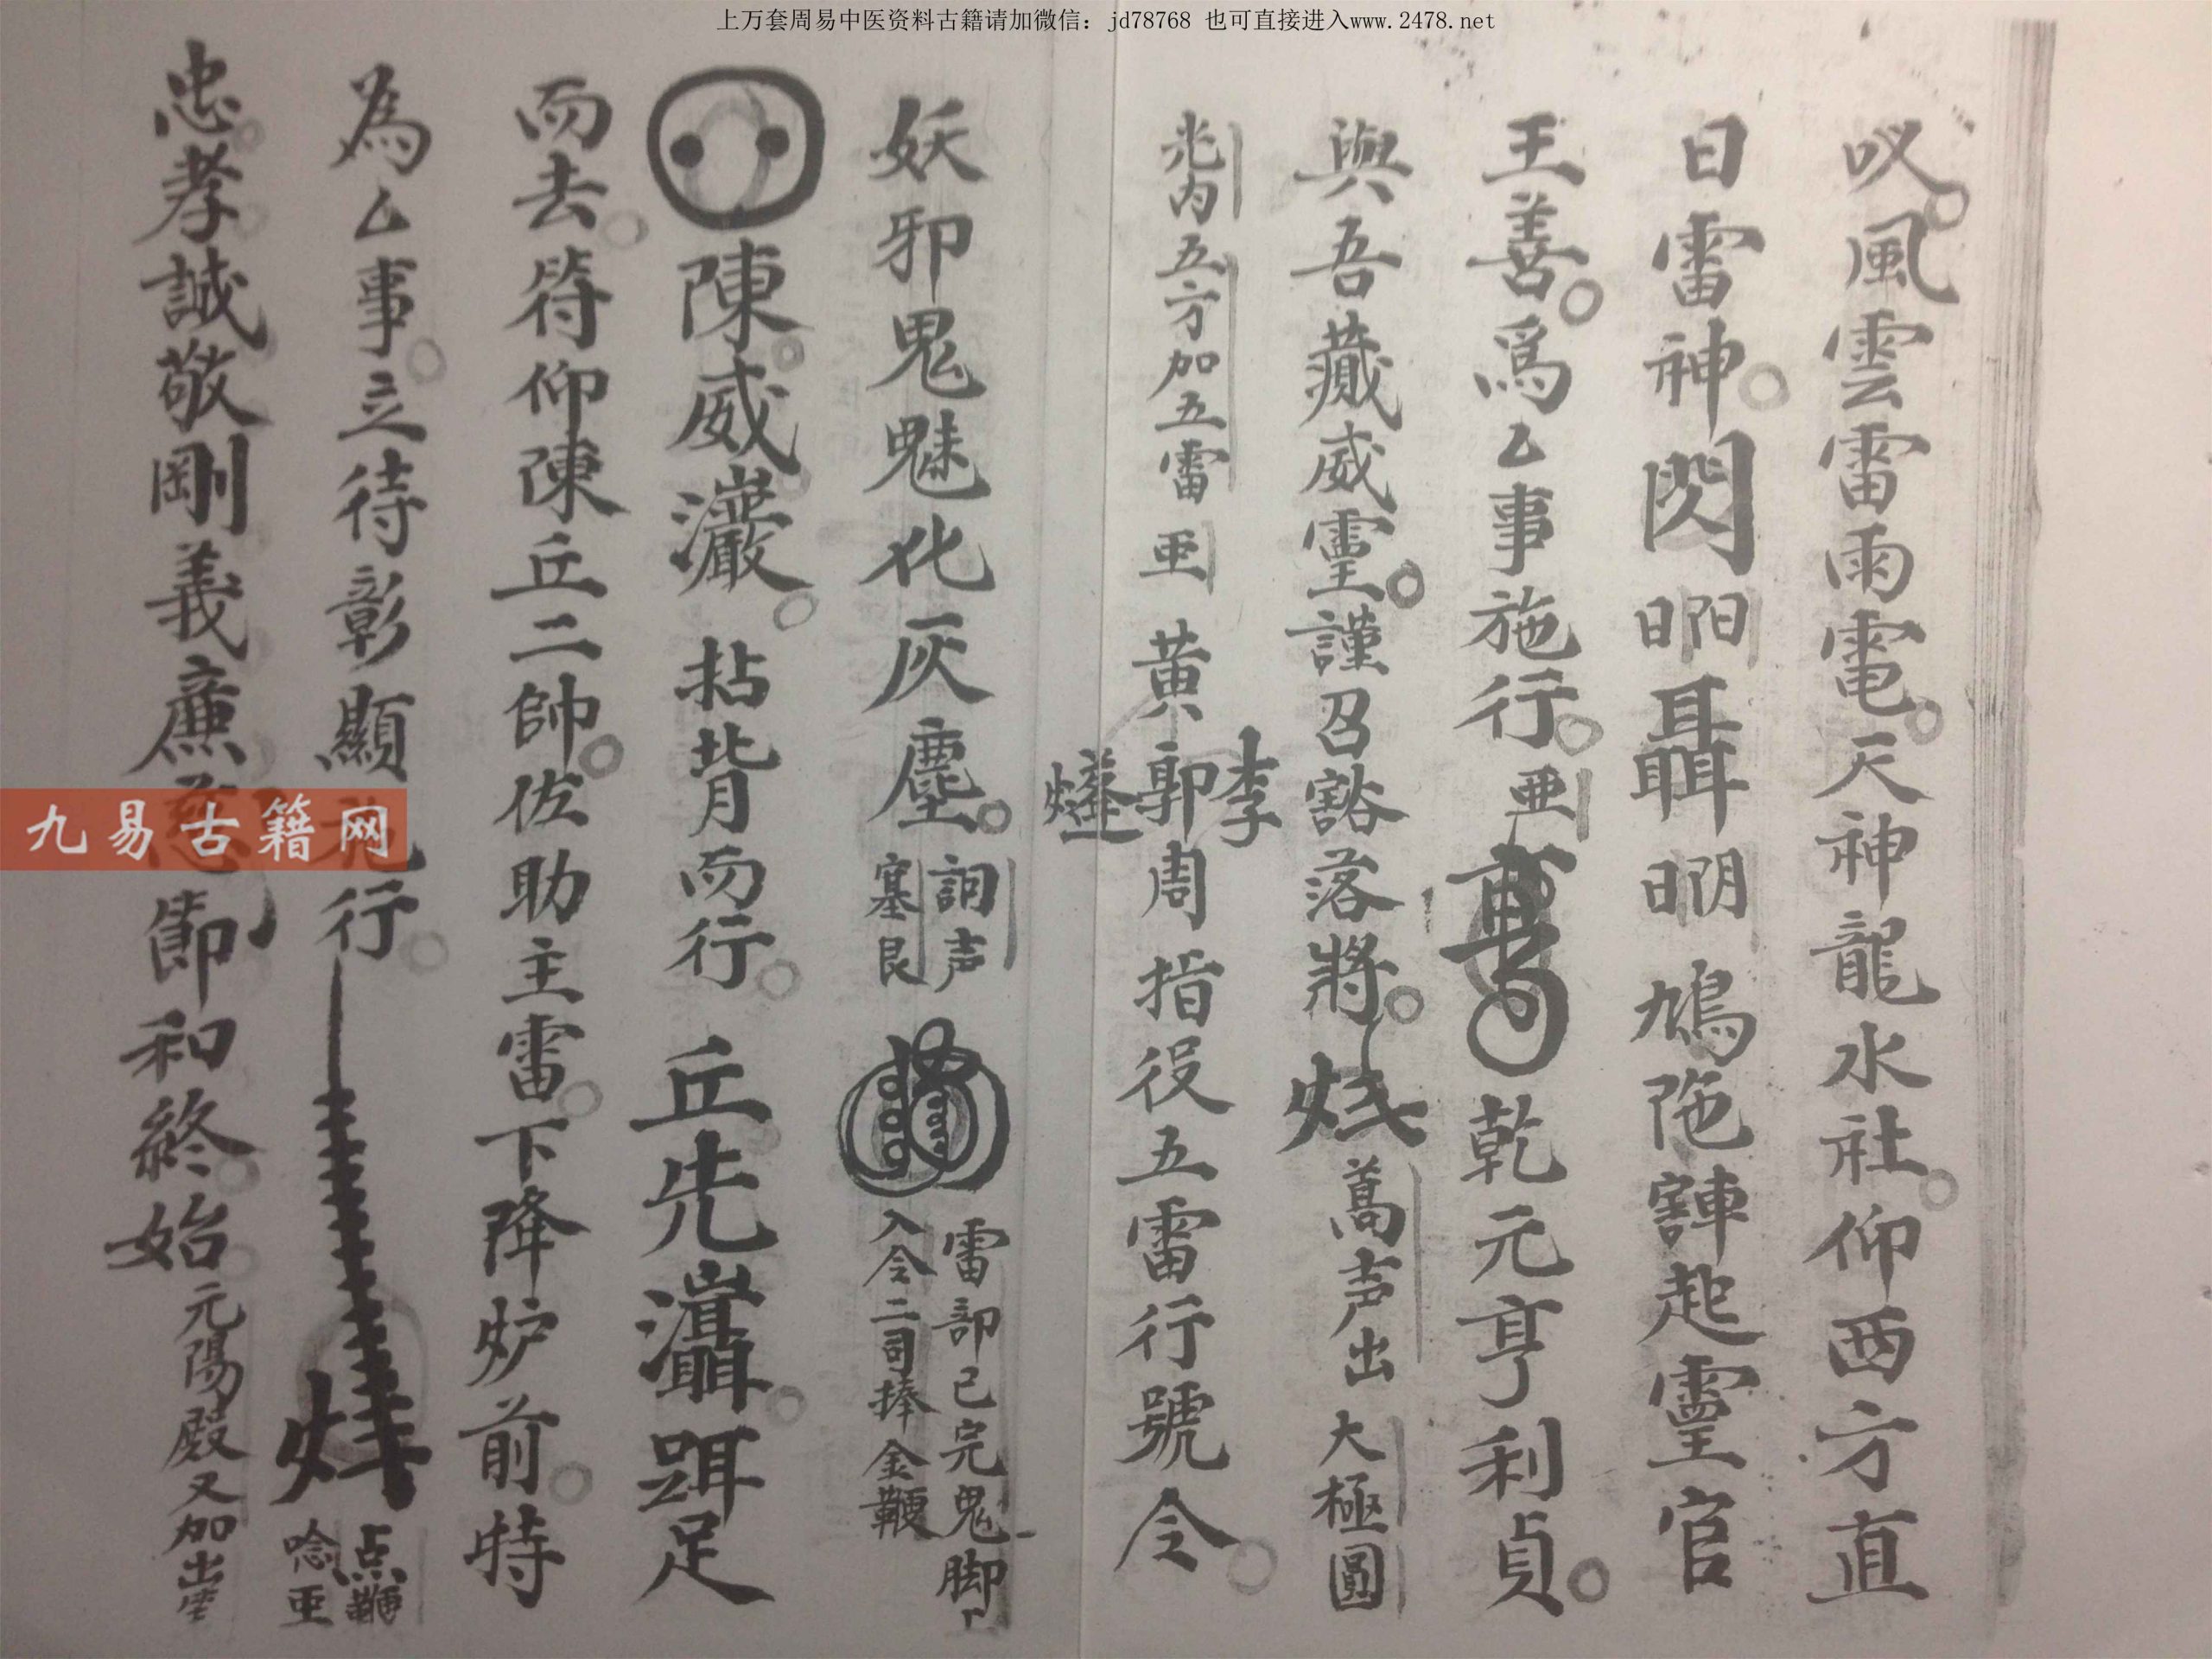 上万套周易中医资料古籍请加微信：jd78768 也可直接进入www.2478.net
叹風雲雷雨電天神龍水社仰西方直
日雷神閃聶鳩陁起靈官
王善爲厶事施行亜乾元亨利貞
與吾藏威靈謹召豁落將高声出大極圓
光内五方加五雷亜黄李郭周指役五雷行號令
妖邪鬼魅化灰塵詞声塞艮雷部已完鬼脚入令二司捧金鞭
陳威灢拈背而行丘先足
而去符仰陳丘二帥佐助主雷下降炉前特
為厶事立待彰顯行点鞭唸亜
忠孝誠敬剛義廉節和終始元陽殿又加出
九易古籍网